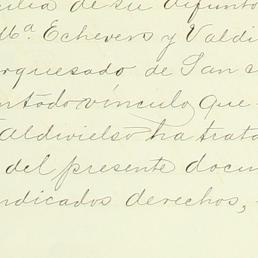 ilia de su difunto
Mª Echevers y Valdi
rquesado de San
ntodo vínculo que
Valdivielso ha trata
del presente docu
ndicados derechos,